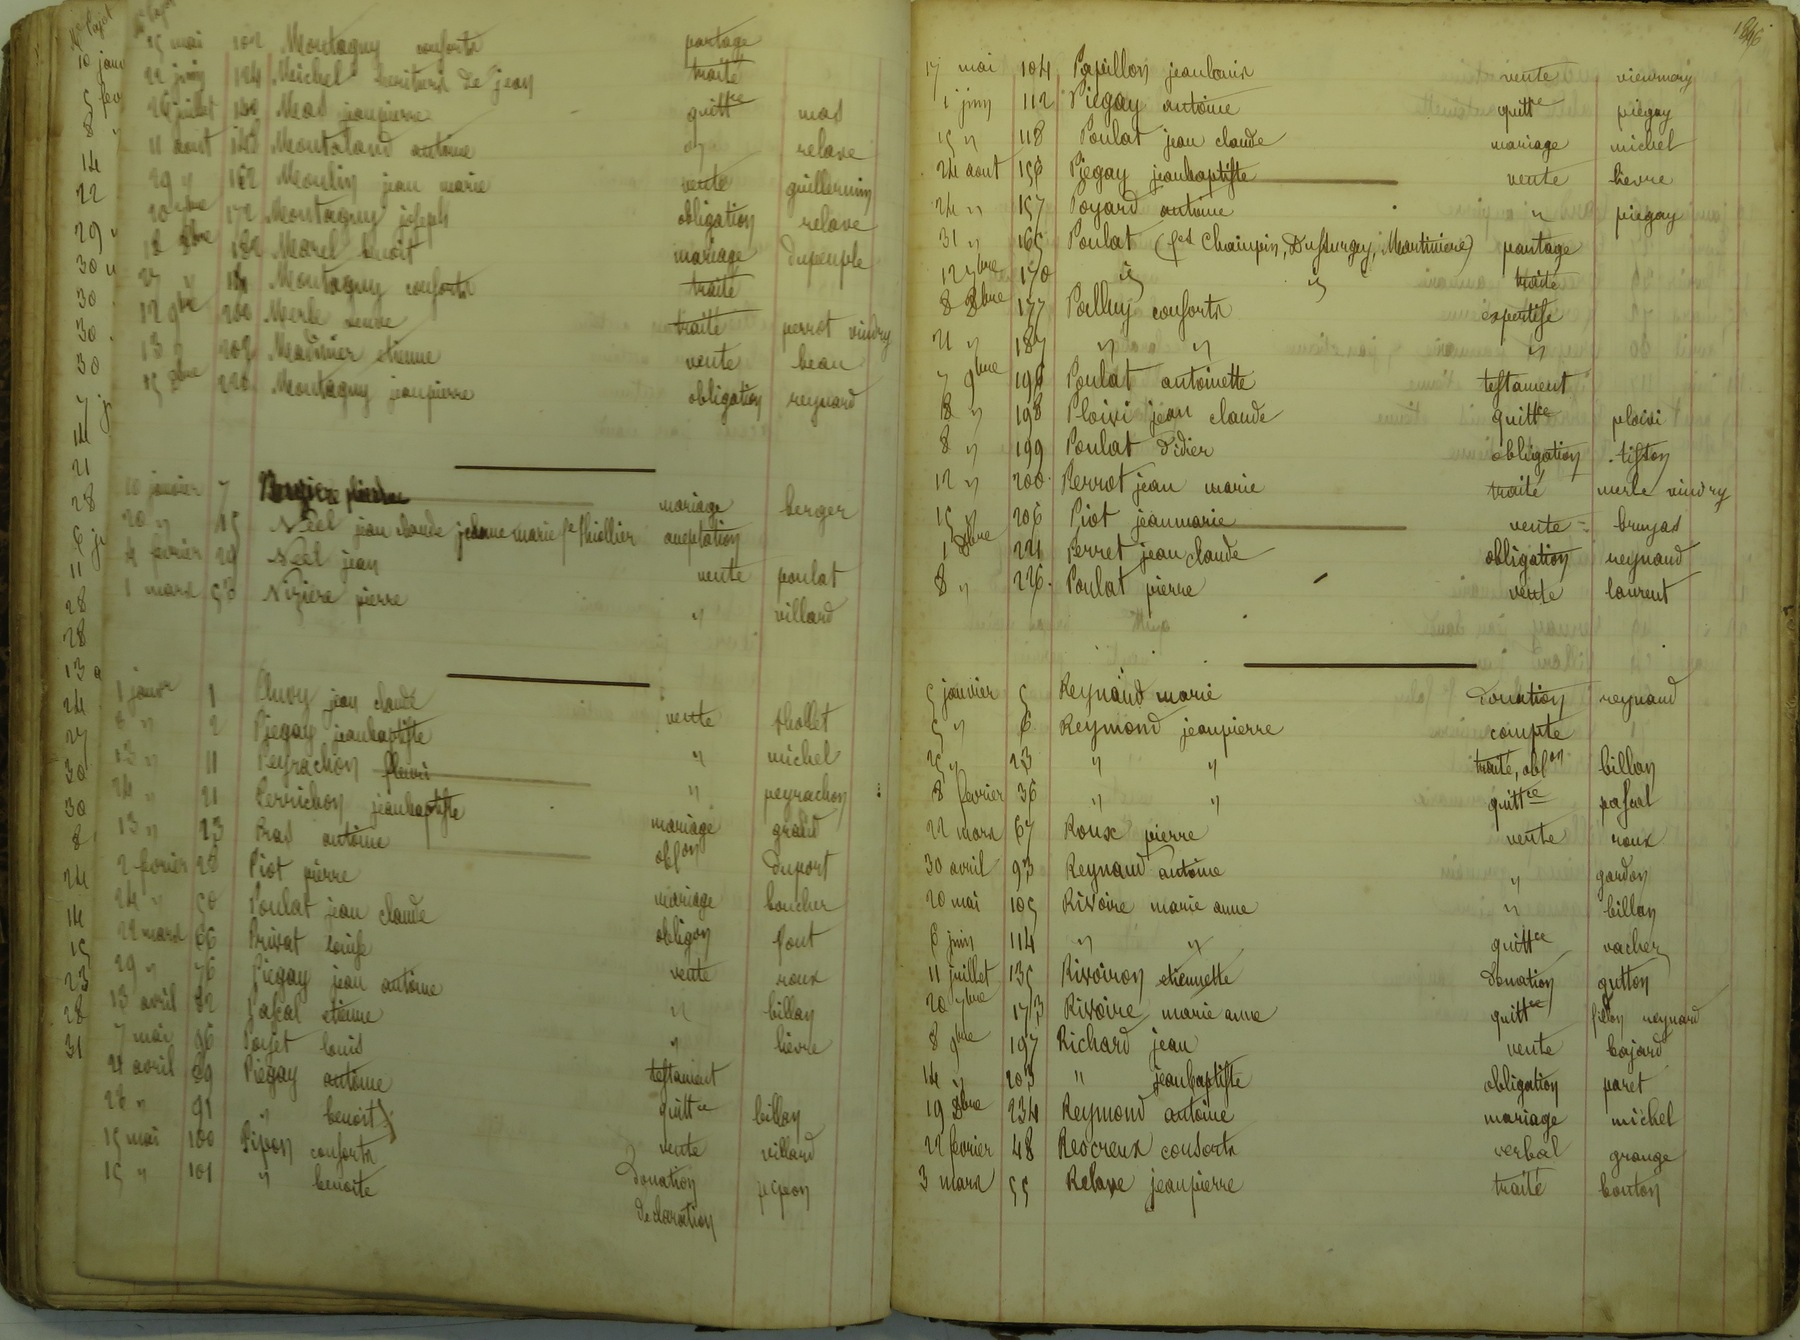 15 mai 102 Montagny consorts partage
22 juin 124 Michel heritiers de jean traité
26 juillet Mas jeanpierre quittce mas
11 aout 142 Montaland antoine relave
29 " 162 Moulin jean marie vente guillermin
20 7bre 172 Montagny joseph obligation relave
12 8bre 182 Morel benoit mariage dupeuple
27 " Montagny consorts traité
12 9bre 200 Merle veuve traité perrot vindry
13 " 202 Madinier etienne vente beau
15 8bre 220 Montagny jeanpierre obligation reynard
10 janvier 7 mariage berger
20 " 15 Néel jean claude jeanne marie fe thiollier aceptation
4 fevrier 29 Néel jean vente poulat
1 mars 53 Nizière pierre " villard
1 janvr 1 Ouvry jean claude vente thollet
8 " 2 Piegay jeanbaptiste " michel
13 " 11 Peyrachon fleuri " peyrachon
24 " 21 Perrichon jeanbaptiste mariage grand
13 " 23 Pras antoine oblon duport
2 fevrier 28 Piot pierre mariage boucher
24 " 50 Poulat jean claude obligon font
22 mars 66 Privat louise vente roux
29 " 76 Piegay jean antoine " billan
13 avril 82 Pascal etienne " lièvre
7 mai 96 louis testament
21 avril 89 Piegay antoine quittce billan
28 " 91 " benoist vente villard
15 mai 100 Pipon consorts Donation pipon
15 " 101 " benoite declaration
1846
17 mai 104 Papillon jeanlouis vente viennay
1 juin 112 Piegay antoine quittce piegay
15 " 118 Poulat jean claude mariage michel
24 aout 156 Piegay jeanbaptiste vente lievre
24 " 157 Poyard antoine " piegay
31 " 165 Poulat (fes Chainpin, Dussurgey, Martiniere) partage
12 7bre 170 id id traité
8 8bre 177 Palluy consorts expertise
21 " 187 " " "
7 9bre 196 Poulat antoinette testament
8 " 198 Ploivi jean claude quittce ploivi
8 " 199 Poulat Didier obligation tisson
12 " 200 Perrot jean marie traité merle vindry
15 " 206 Piot jeanmarie vente brunjas
1 8bre 221 Perret jean claude obligation reynaud
8 " 226 Poulat pierre vente laurent
5 janvier 5 Reynaud marie Donation reynaud
5 " 6 Reymond jeanpierre compte
25 " 23 " " traité, oblon billan
8 fevrier 36 " " quittce pascal
22 mars 67 Roux pierre vente roux
30 avril 93 Reynaud antoine " gardon
20 mai 105 Rivoire marie anne " billan
6 juin 114 " " quittce vacher
11 juillet 135 Rivoiron etiennette Donation gutton
20 7bre 173 Rivoire marie anne quittce reynard
8 9bre 197 Richard jean vente bajard
14 " 203 " jeanbaptiste obligation paret
19 8bre 234 Reymond antoine mariage michel
22 fevrier 48 Recreux consorts verbal grange
3 mars 55 Relave jeanpierre traité bonton